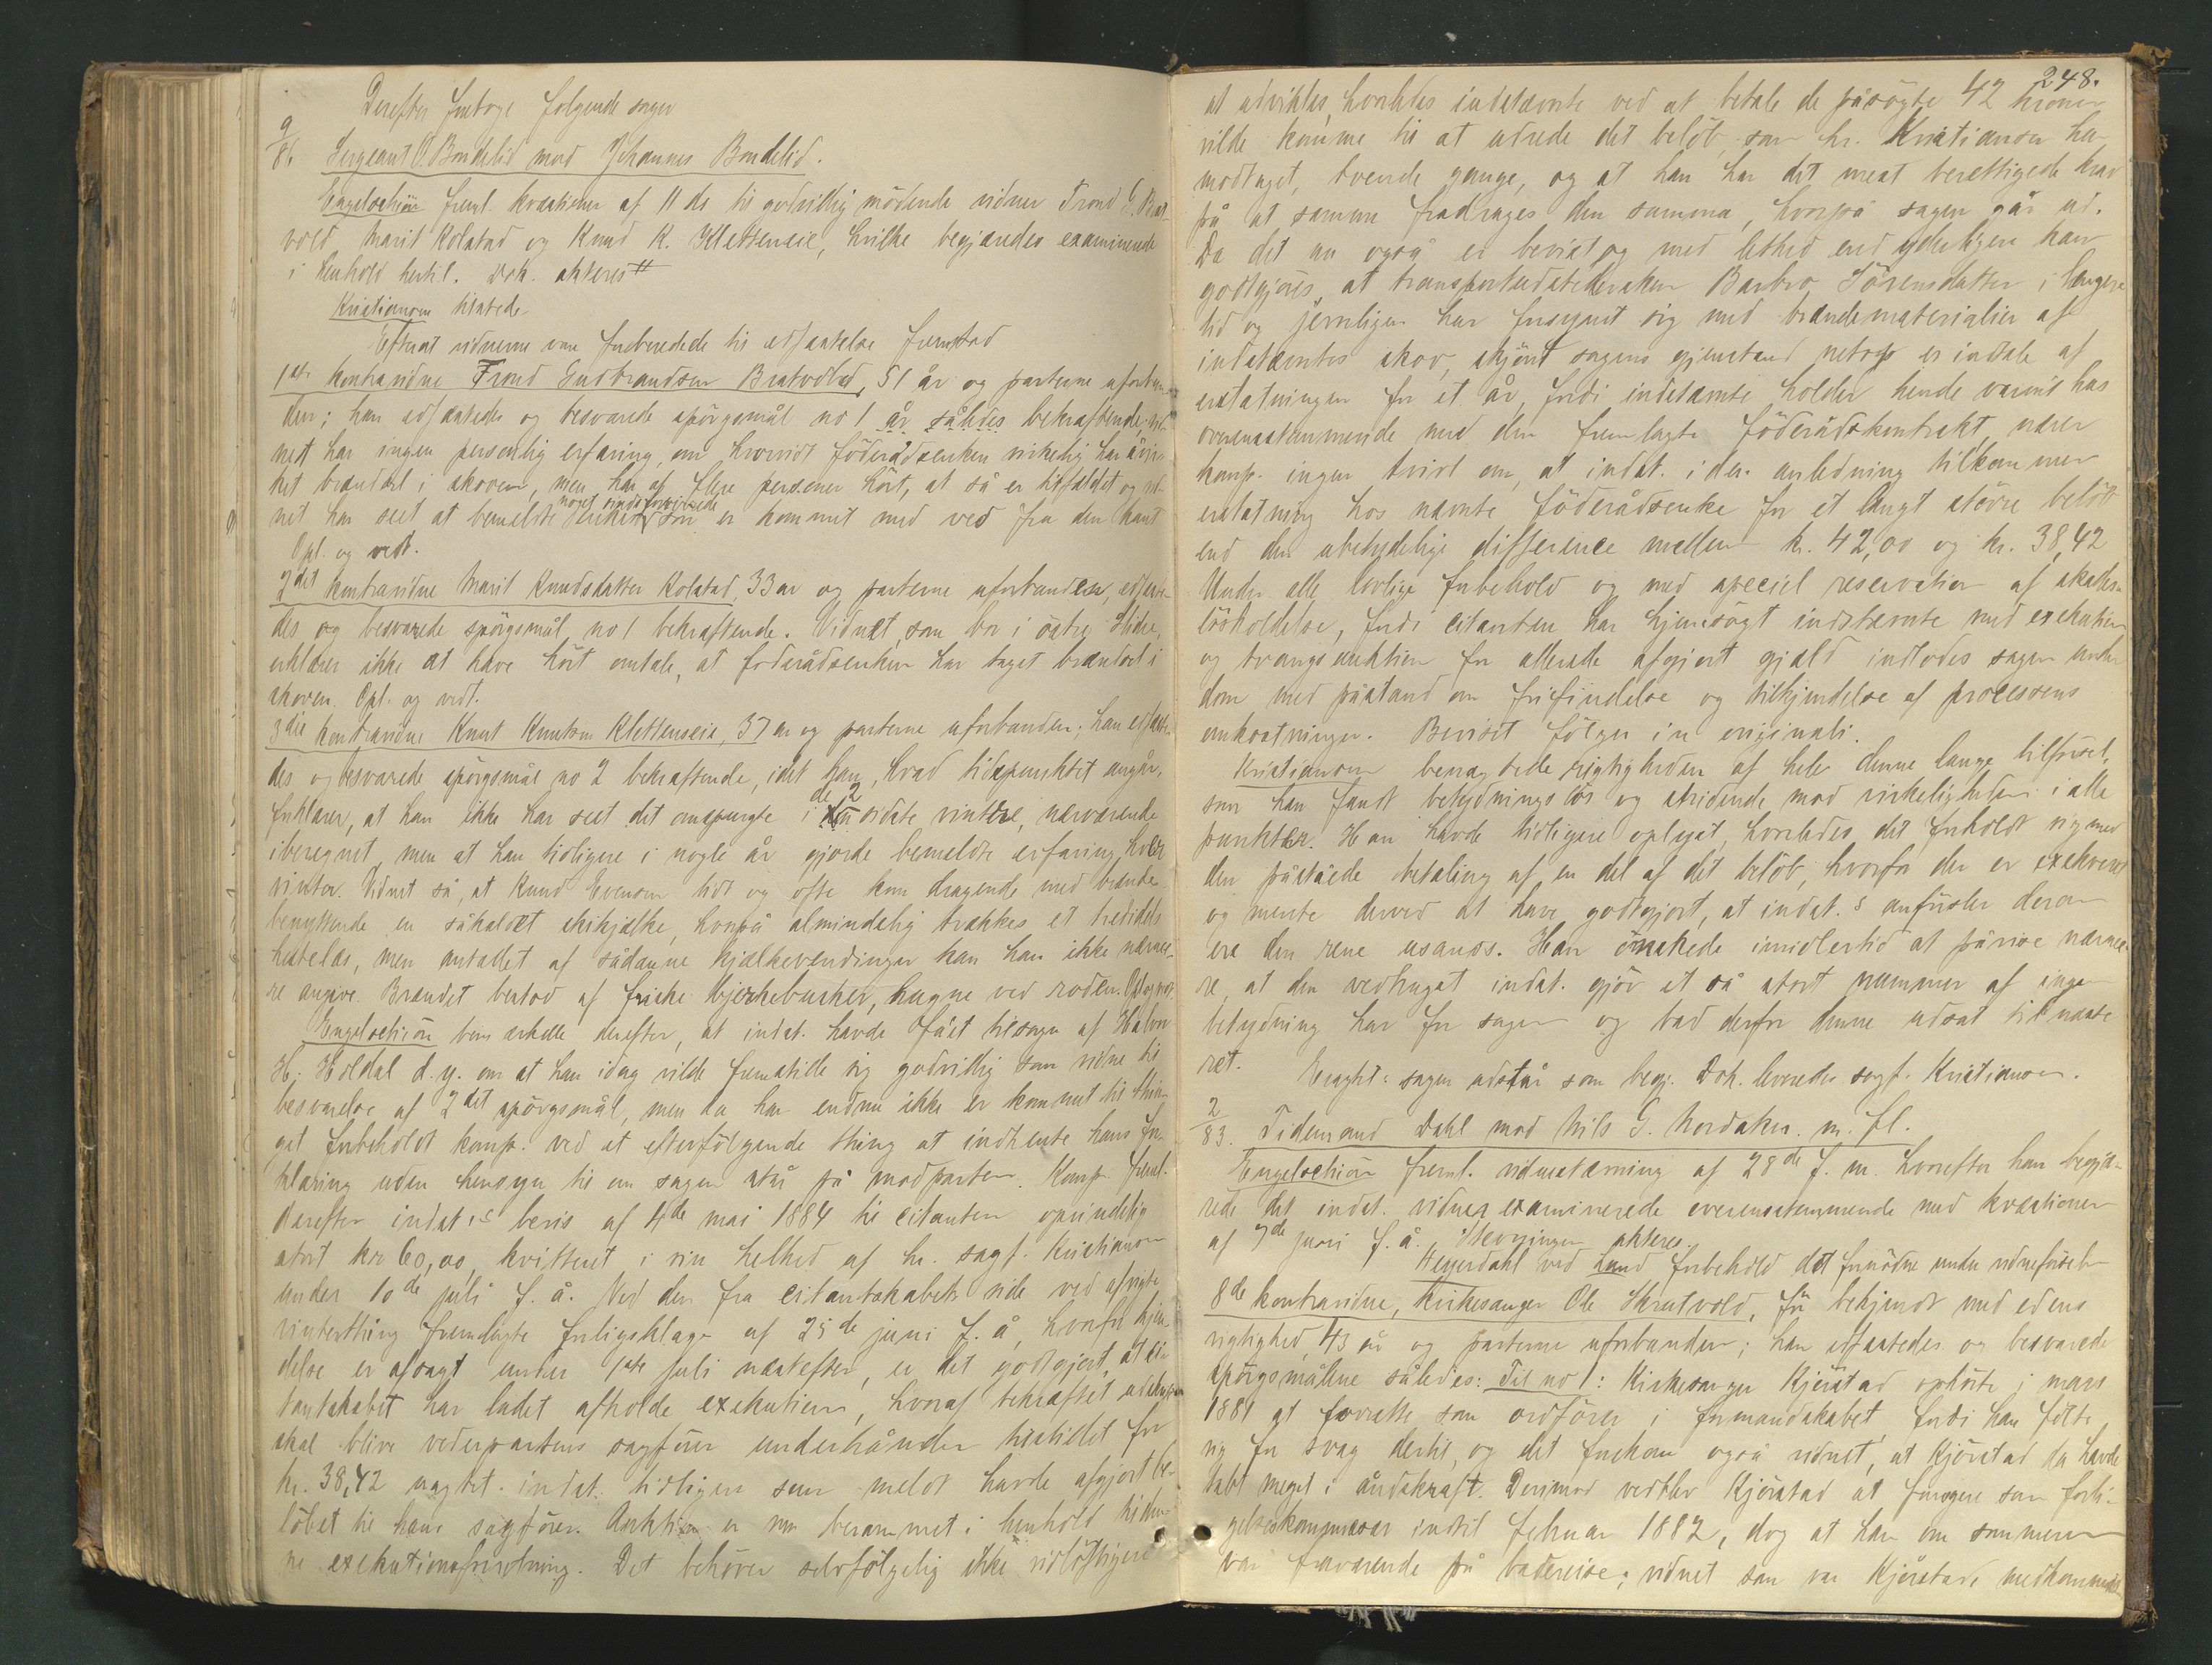 Derefter foretoges følgende sager
9/86. Sergeant O. Bondelid mod Johannes Bondelid.
Engelschiøn freml. kvæstioner af 11 ds til godvillig mödende vidner Trond G. Brat-
vold, Marit Kolstad og Knud K. Klettenseie, hvilke begjæredes examinerede
i henhold hertil. Dok. akteres
Kristiansen tilstede
Efterat vidnerne vare forberedede til edfæstelse fremstod
1ste kontravidne Trond Gudbrandsen Bratvold, 51 år og parterne uforbun-
den; han edfæstedes og besvarede spörgsmål no 1 således bekræftende; vid-
net har ingen personlig erfaring, om hvorvidt föderådsenken virkelig har
ket brændsel i skoven, men har af flere personer hört, at så er tilfældet og vid-
net har seet at bemeldte enkes noget sindsforvirrede sön er kommet med ved fra den kant
Opl. og vedt.
2det kontravidne Marit Knudsdatter Kolstad, 33 år og parterne uforbunden, edfæste-
des og besvarede spörgsmål no 1 bekræftende. Vidnet, som bor i östre Slidre,
erklærer ikke at have hört omtale, at foderådsenken har taget brændsel i
skoven. Opl. og vedt.
3die kontravidne Knut Knutsen Klettenseie, 37 år og parterne uforbunden; han edfæste-
des og besvarede spörgsmål no 2 bekræftende, idet han, hvad tidspunktet angår,
forklarer, at han ikke har seet det omspurgte i de 2 sidste vintre, nærværende
iberegnet, men at han tidligere i nogle år gjorde bemeldte erfaring hver
vinter. Vidnet så, at Knud Evensen tidt og ofte kom dragende med brænde
benyttende en såkaldet skikjælke, hvorpå almindelig trækkes et trediedels
hestelæs, men antallet af sådanne kjælkevendinger kan han ikke nærme-
re angive. Brændet bestod af friske bjerkebusker, hugne ved roden. Opl og vedt.
Engelschiøn bemærkede derefter, at indst. havde fået tilsagn af Halvor
H. Holdal d. y. om at han idag vilde fremstille sig godvillig som vidne til
besvarelse af 2det spörgsmål, men da han endnu ikke er kommet til thin-
get forbeholdt komp. ved et efterfölgende thing at indhente hans for-
klaring uden hensyn til om sagen står på modparten. Komp. freml.
derefter indst.s bevis af 4de mai 1884 til citanten oprindelig
stort kr 60,00 kvitteret i sin helhed af hr. sagf. Kristiansen
under 10de juli f. å. Ved den fra citantskabets side ved afvigte
vinterthing fremlagte forligsklage af 25de juni f. å, hvorfor kjen-
delse er afsagt under 1ste juli næstefter, er det godtgjort, at ci-
tantskabet har ladet afholde exekution, hvoraf bekræftet udskrift
skal blive vederpartens sagförer underhånden tilstillet for
kr. 38,42 uagtet indst. tidligere som meldt havde afgjort be-
löbet til hans sagförer. Auktion er nu berammet i henhold til den-
ne exekutionsforretning. Det behöver selvfölgelig ikke vidlöftigere
248.
at udvikles, hvorledes indstævnte ved at betale de påsögte 42 kroner
vilde komme til at udrede det belöb, som hr. Kristiansen har
modtaget, tvende gange, og at han har det mest berettigede krav
på at samme fradrages den summa, hvorpå sagen går ud.
Da det nu også er bevist og med lethed end yderligere kan
godtgjöres, at transportudstedersken Barbro Sörensdatter i længere
tid og jevnligen har forsynet sig med brændematerialier af
indstævntes skov, skjönt sagens gjenstand netop er indtale af
erstatningen for et år, fordi indstævnte holder hende varmt hus
overensstemmende med den fremlagte föderådskontrakt, nærer
komp. ingen tvivl om, at indst. i den anledning tilkommer
erstatning hos nævnte föderådsenke for et langt större belöb
end den ubetydelige difference mellem kr. 42,00 og kr. 38,42
Under alle lovlige forbehold og med speciel reservation af skades-
lösholdelse, fordi citanten har hjemsögt indstævnte med exekution
og tvangsauktion for allerede afgjort gjæld indlodes sagen under
dom med påstand om frifindelse og tilkjendelse af processens
omkostninger. Beviset fölger in originali.
Kristiansen benægtede rigtigheden af hele denne lange tilförsel,
som han fandt betydningslös og stridende mod virkeligheden i alle
punkter. Han havde tidligere oplyst, hvorledes det forholdt sig med
den påståede betaling af en del af det belöb, hvorfor der er exekveret
og mente derved at have godtgjort, at indst.s anförsler derom
ere den rene usands. Han önskede imidlertid at påvise nærme-
re, at den vedhugst indst. gjör et så stort nummer af ingen
betydning har for sagen og bad derfor denne udsat til næste
ret.
Eragtet: sagen udstår som begj. Dok. leveredes sagf. Kristiansen.
2/83. Tidemand Dahl mod Nils G. Nordaker m. fl.
Engelschiøn freml. vidnestævning af 28de f. m. hvorefter han begjæ-
rede det indst. vidne examinerede overensstemmende med kvæstioner
af 7de juni f. å. Stevningen akteres.
Heyerdahl ved Lund forbeholdt det fornödne under vidneförselen
8de kontravidne, kirkesanger Ole Skrutvold, för bekjendt med edens
vigtighed, 43 år og parterne uforbunden; han edfæstedes og besvarede
spörgsmållne således: Til no 1: Kirkesanger Kjörstad ophörte i mars
1881 at forrette som ordförer i formandskabet, fordi han fölte
sig for svag dertil, og det forekom også vidnet, at Kjörstad da havde
tabt meget i åndskraft. Derimod vedblev Kjörstad at fungere som forli-
gelseskommissær indtil februar 1882, dog at han om sommeren
var fraværende på badereise; vidnet som var Kjörstads medkommis-